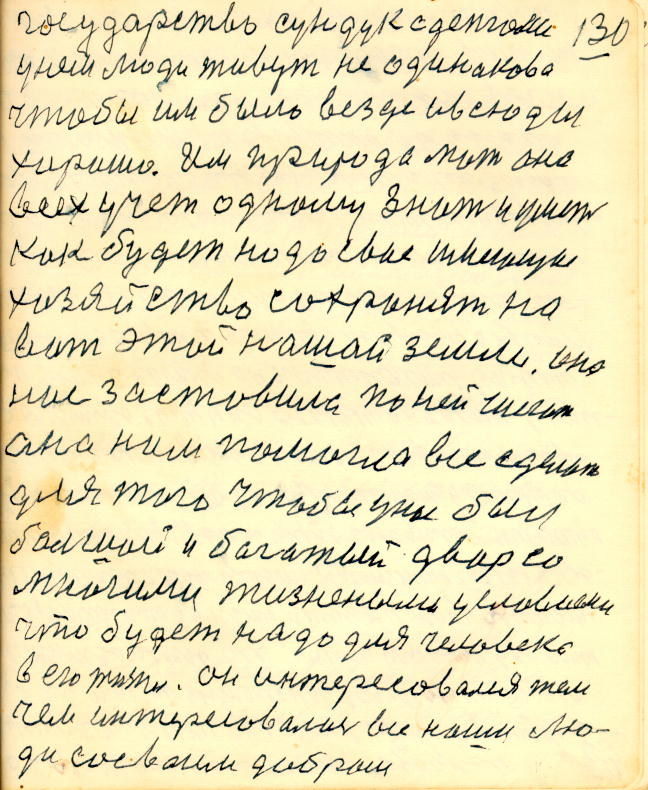 государство сундук с денгами 130
у нем люди живут не одинакова
чтобы им было везде и всюды
хорошо. Им природа мат она
всех учет одному знат и умет
как будет надо свае имеющие
хозяйство сохранят на
вот этой нашай земли. она
нас заставила по ней шагат
ана нам помогла все сделат
для того чтобы у нас был
болшой и багатый двар со
многими жизнеными условиями
что будет надо для человека
в его жизни. он интересовался тем
чем интересовалис все наши лю-
ди со сваим добрам